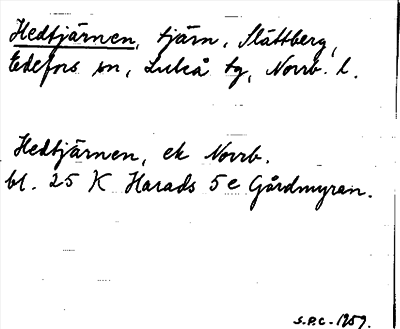 Hedtjärnen, tjärn, Slättberg,
Edefors sn, Luleå tg, Norrb. l.
Hedtjärnen, ek Norrb.
bl. 25 K Harads 5e Gårdmyran.
S.P.C. - 1959.